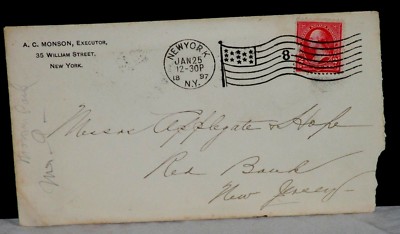 A. C. MONSON, EXECUTOR,
35 WILLIAM STREET,
NEW YORK.
NEW YORK
JAN 25
12-30P
18 97
N.Y.
8
Messrs Applegate & Hope
Red Bank
New Jersey